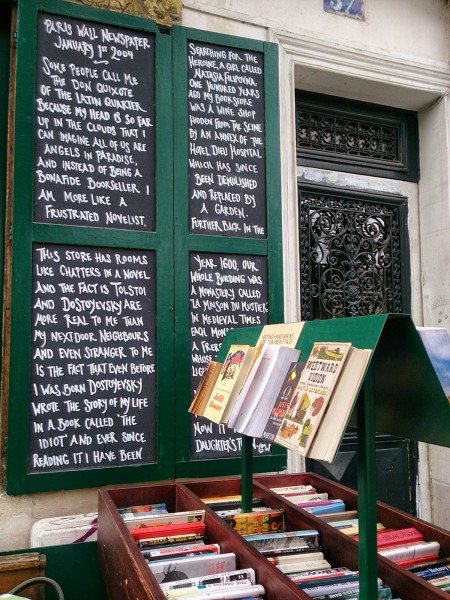 PARIS WALL NEWSPAPER
JANUARY 1ST 2004
SOME PEOPLE CALL ME
THE DON QUIXOTE
OF THE LATIN QUARTER
BECAUSE MY HEAD IS SO FAR
UP IN THE CLOUDS THAT I
CAN IMAGINE ALL OF US ARE
ANGELS IN PARADISE.
AND INSTEAD OF BEING A
BONAFIDE BOOKSELLER I
AM MORE LIKE A
FRUSTRATED NOVELIST.
THIS STORE HAS ROOMS
LIKE CHAPTERS IN A NOVEL
AND THE FACT IS TOLSTOI
AND DOSTOYEVSKY ARE
MORE REAL TO ME THAN
MY NEXT DOOR NEIGHBOURS
AND EVEN STRANGER TO ME
IS THE FACT THAT EVEN BEFORE
I WAS BORN DOSTOYEVSKY
WROTE THE STORY OF MY LIFE
IN A BOOK CALLED THE
'IDIOT' AND EVER SINCE
READING IT I HAVE BEEN
SEARCHING FOR THE
HEROINE, A GIRL CALLED
NATASIA FILIPOVNA.
ONE HUNDRED YEARS
AGO MY BOOKSTORE
WAS A WINE SHOP
HIDDEN FROM THE SEINE
BY AN ANNEX OF THE
HOTEL DIEU HOSPITAL
WHICH HAS SINCE
BEEN DEMOLISHED
AND REPLACED BY
A GARDEN.
FURTHER BACK IN THE
YEAR 1600, OUR
WHOLE BUILDING WAS
A MONASTERY CALLED
'LA MAISON DU MUSTIER'
IN MEDIEVAL TIMES
EACH MON
A FRERE
WHOSE
NOW
DAUGHTER
37
WESTWARD
VISION